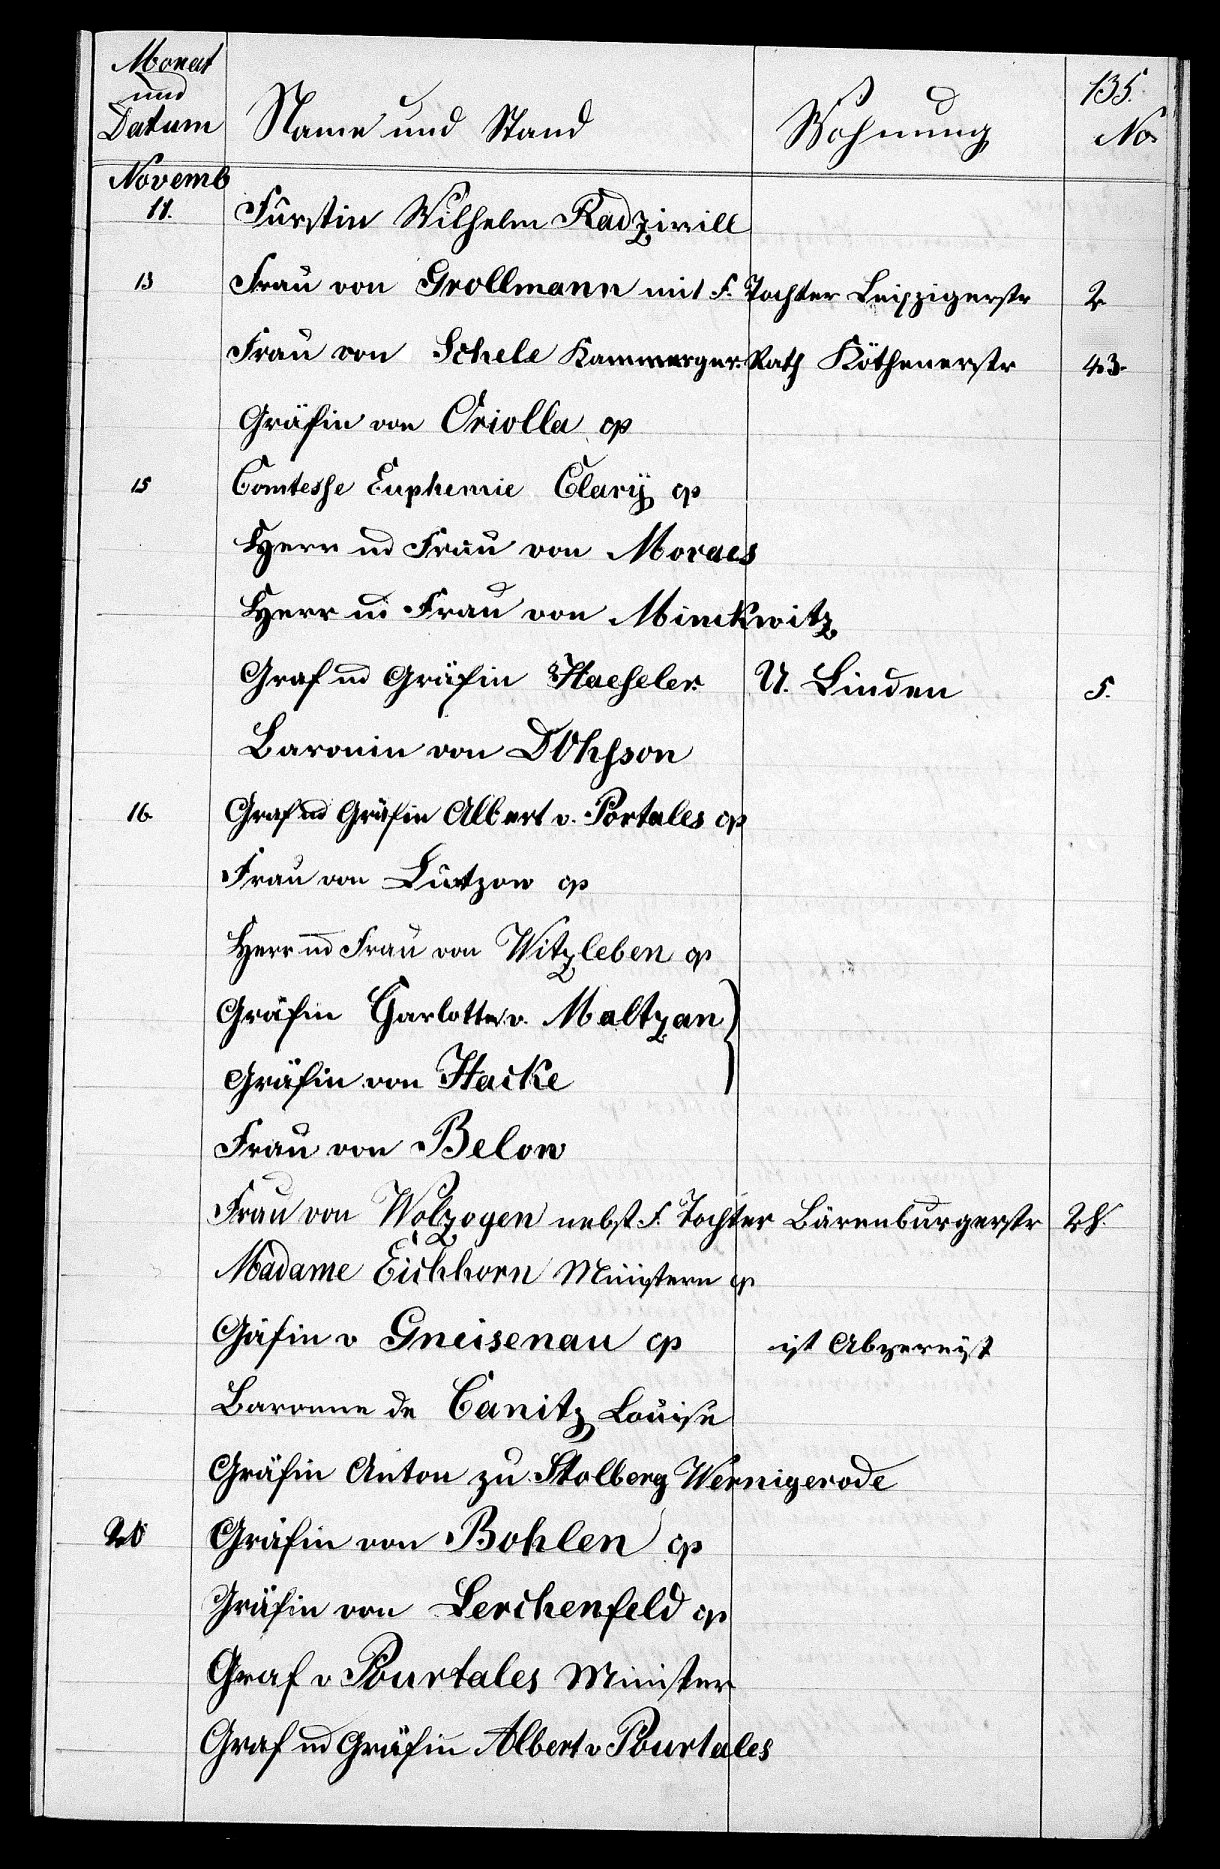 135.
Monat
und
Datum Name und Stand Wohnung No.
Novemb
11. Fürstin Wilhelm Radziwill
13 Frau von Grollmann mit f. Tochter Leipzigerstr 2
Frau von Schele Kammerger. Rath Köthenerstr 43.
Gräfin von Oriolla cp
15 Comtesse Euphemie Clarÿ cp
Herr ud Frau von Moraes
Herr ud Frau von Minckwitz
Graf ud Gräfin Haeseler. U. Linden 5.
Baronin von DOhsson
16. Graf ud Gräfin Albert v. Portales cp
Frau von Lützow cp
Herr ud Frau von Witzleben cp
Gräfin Charlotte v. Maltzan
Gräfin von Hacke
Frau von Below
Frau von Wolzogen nebst f. Tochter Bärenburgerstr
Madame Eichhorn Ministern cp
Gäfin v Gneisenau cp ist Abgereist
Baronne de Canitz Louise
Gräfin Anton zu Stolberg Wernigerode
20 Gräfin von Bohlen cp
Gräfin von Lerchenfeld cp
Graf v Pourtales Minister
Graf ud Gräfin Albert v Pourtales